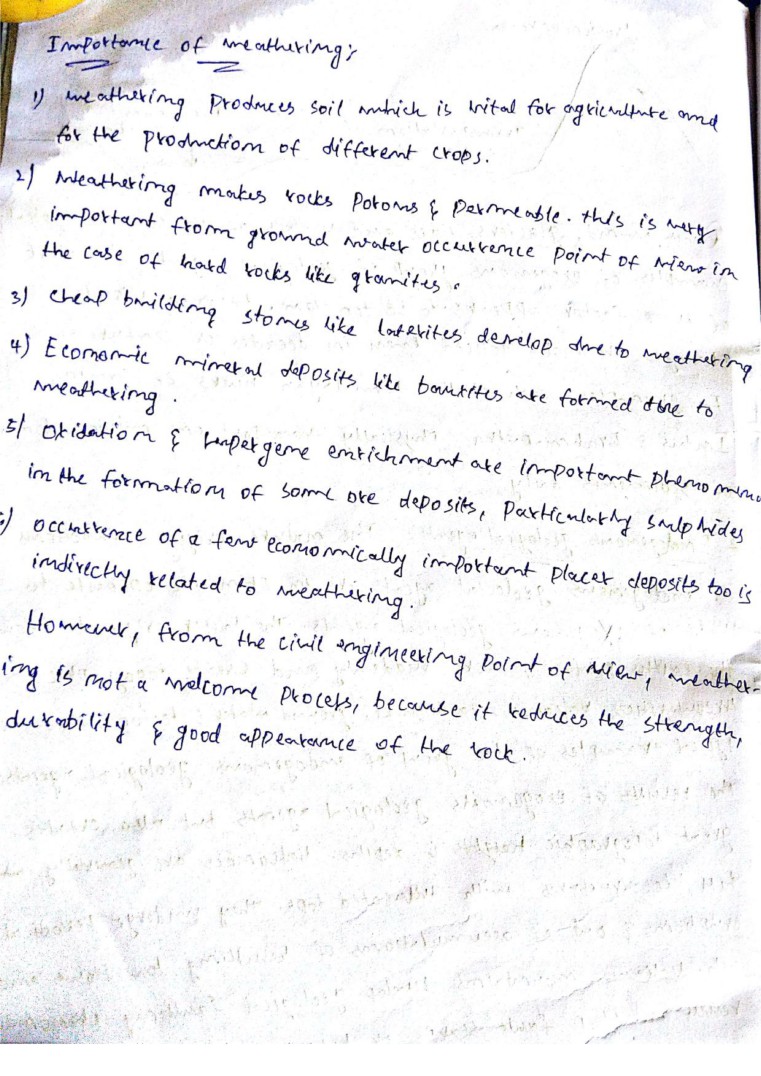 Importance of weathering:
1) weathering produces soil which is vital for agriculture and
for the production of different crops.
2) Weathering makes rocks porous & permeable. this is very
important from ground water occurrence point of view in
the case of hard rocks like granites.
3) cheap building stones like laterites develop due to weathering
4) Economic mineral deposits like bauxites are formed due to
weathering.
5) Oxidation & supergene enrichment are important phenomena
in the formation of some ore deposits, particularly sulphides
occurrence of a few economically important placer deposits too is
indirectly related to weathering.
However, from the civil engineering point of view, weather-
ing is not a welcome process, because it reduces the strength,
durability & good appearance of the rock.